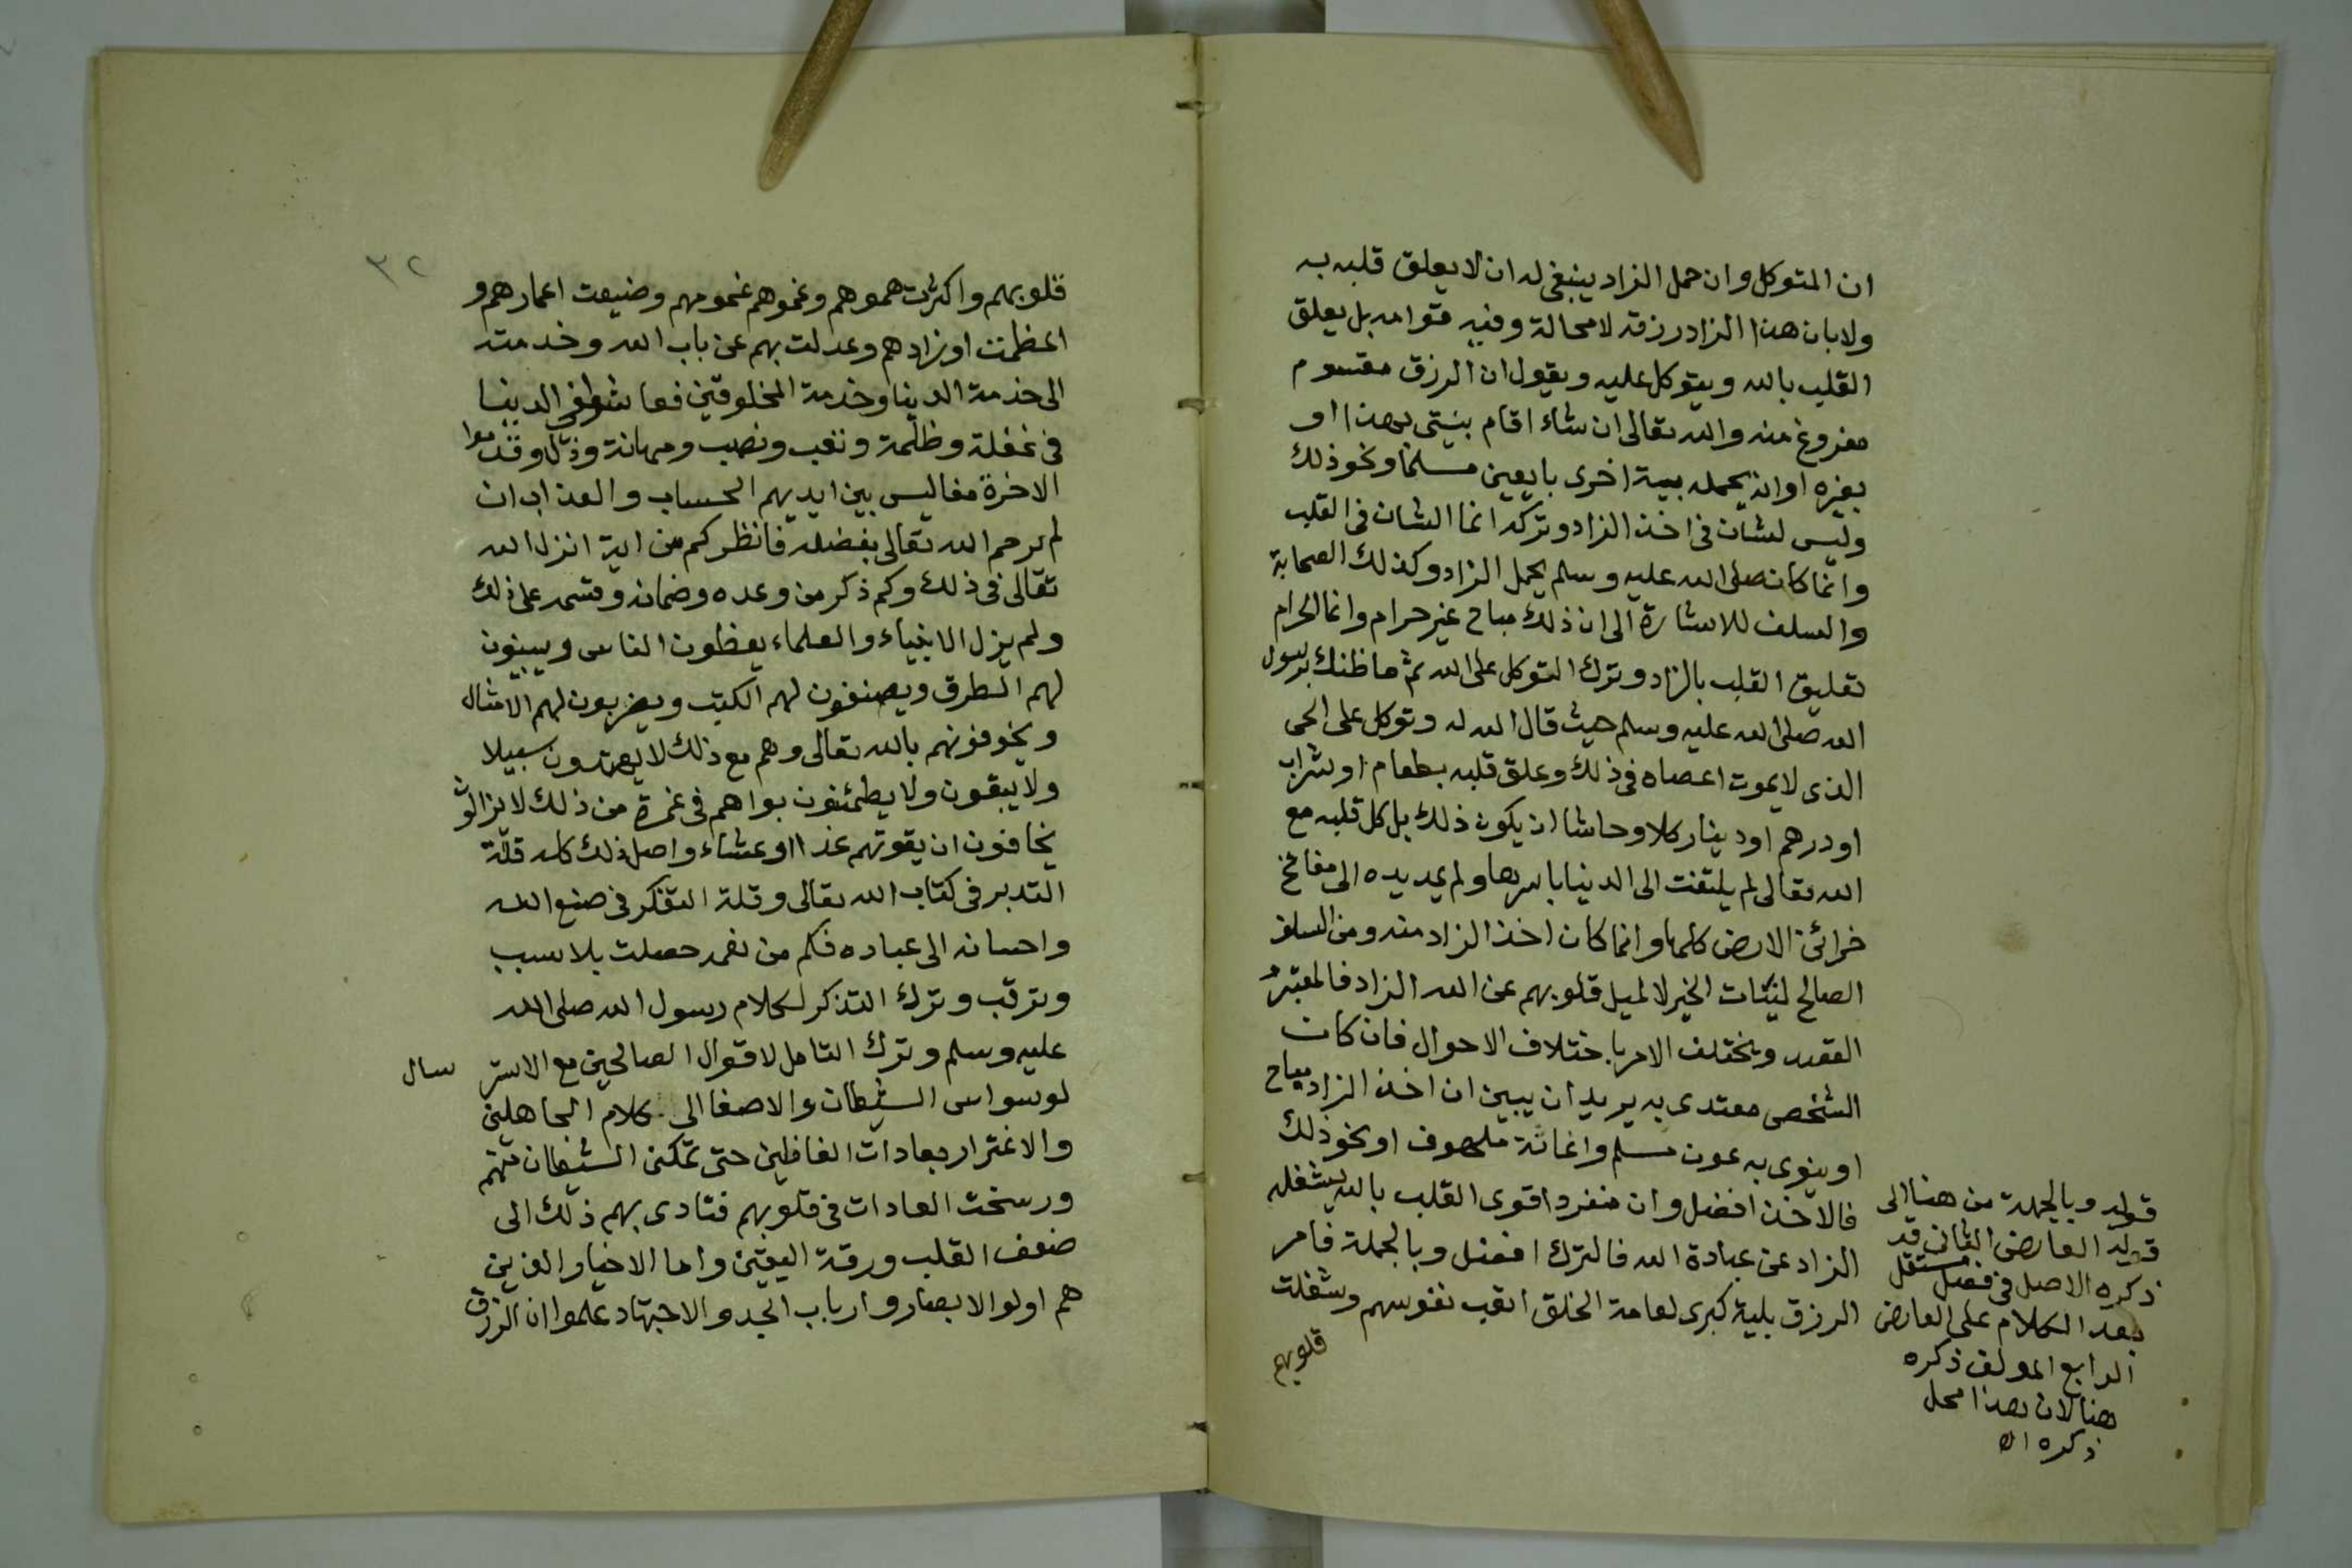 ان المتوكل وان حمل الزاد ينبغى له ان لا يعلق قلبه به
ولا بان هذا الزاد رزقه لا محالة وفيه قوامه بل يعلق
القلب بالله ويتوكل عليه ويقول ان الرزق مقسوم
مفروغ منه والله تعالى ان شاء اقام بنيتى بهذا او
بغيره او ان يحمله بنية اخرى بان يعين مسلما ونحو ذلك
وليس لشان فى اخذ الزاد وتركه انما الشان فى القلب
وانما كان صلى الله عليه وسلم يحمل الزاد وكذلك الصحابة
والسلف للاشارة الى ان ذلك مباح غير حرام وانما الحرام
تعليق القلب بالزاد وترك التوكل على الله ثم ما ظنك برسول
الله صلى الله عليه وسلم حيث قال الله له وتوكل على الحى
الذى لا يموت اعصاه فى ذلك وعلق قلبه بطعام او شراب
او درهم او دينار كلا وحاشا ان يكون ذلك بل كل قلبه مع
الله تعالى لم يلتفت الى الدنيا باسرها ولم يمد يده الى مفاتح
خزائن الارض كلها وانما كان اخذ الزاد منه ومن السلف
الصالح لنيات الخير لا لميل قلوبهم عن الله الزاد فالمعتبر
القصد ويختلف الامر باختلاف الاحوال فان كان
الشخص مقتدى به يريد ان يبين ان اخذ الزاد مباح
او ينوى به عون مسلم واغاثة ملهوف او نحو ذلك
فالاخذ افضل وان منفردا قوى القلب بالله يشغله
الزاد عن عبادة الله فالترك افضل وبالجملة فامر
الرزق بلية كبرى لعامة الخلق اتعب نفوسهم وشغلت
قلوبهم
قوله وبالجملة من هنا الى
قوله العارض الثانى قد
ذكره الاصل فى فصل مستقل
بعد الكلام على العارض
الرابع المولف ذكره
هنا لان هذا محل
ذكره اه
٣٢
قلوبهم واكثرت همومهم وغموهم غمومهم وضيعت اعمارهم و
اعظمت اوزارهم وعدلت بهم عن باب الله وخدمته
الى خدمة الدنيا وخدمة المخلوقين فعاشوا فى الدنيا
فى غفلة وظلمة وتعب ونصب ومهانة وذل وقدموا
الاخرة مفاليس بين ايديهم الحساب والعذاب ان
لم يرحم الله تعالى بفضله فانظر كم من اية انزل الله
تعالى فى ذلك وكم ذكر من وعده وضمانه وقسمه على ذلك
ولم يزل الانبياء والعلماء يعظون الناس ويبينون
لهم الطرق ويصنفون لهم الكتب ويضربون لهم الامثال
ويخوفونهم بالله تعالى وهم مع ذلك لا يهتدون سبيلا
ولا يبقون ولا يطمئنون بواهم فى غمرة من ذلك لا يزالون
يخافون ان يفوتهم غدا او عشاء واصل ذلك كله قلة
التدبر فى كتاب الله تعالى وقلة التفكر فى صنع الله
واحسانه الى عباده فكم من نعمه حصلت بلا سبب
وترقب وترك التذكر لكلام رسول الله صلى الله
عليه وسلم وترك التامل لاقوال الصالحين مع الاستر سال
لوسواس الشيطان والاصغا الى كلام الجاهلين
والاغترار بعادات الغافلين حتى تمكن الشيطان منهم
ورسخت العادات فى قلوبهم فتادى بهم ذلك الى
ضعف القلب ورقة اليقين واما الاخيار الذين
هم اولو الابصار وارباب الجد والاجتهاد علموا ان الرزق